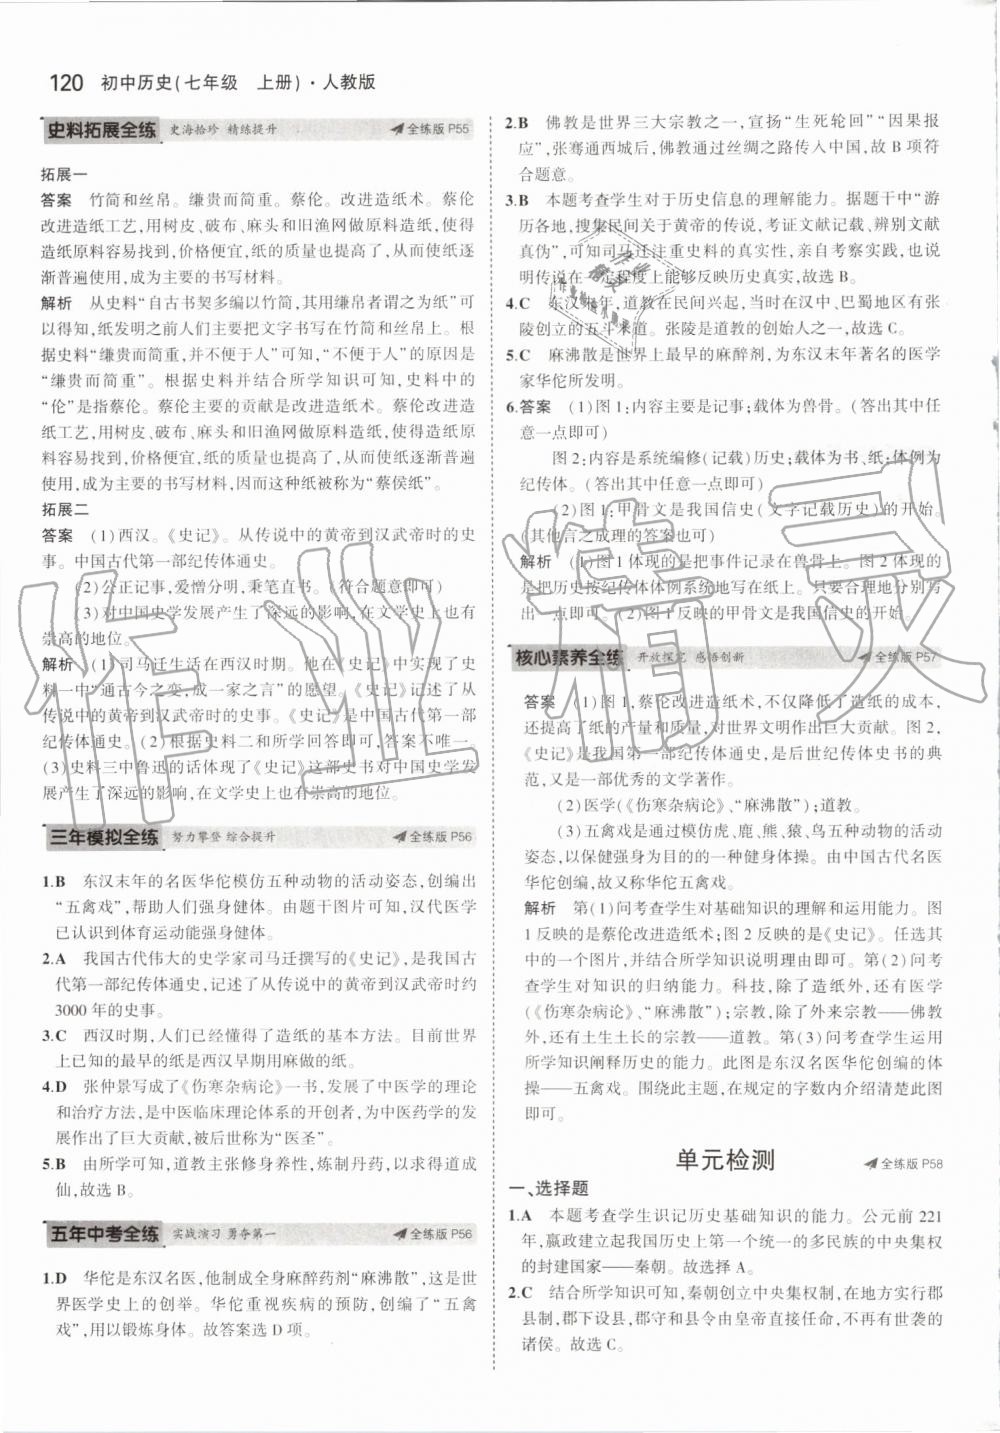 120 初中历史(七年级 上册)·人教版
史料拓展全练 史海拾珍 精练提升 全练版 P55
拓展一
答案 竹简和丝帛。缣贵而简重。蔡伦。改进造纸术。蔡伦
改进造纸工艺,用树皮、破布、麻头和旧渔网做原料造纸,使得
造纸原料容易找到,价格便宜,纸的质量也提高了,从而使纸逐
渐普遍使用,成为主要的书写材料。
解析 从史料“自古书契多编以竹简,其用缣帛者谓之为纸”可
以得知,纸发明之前人们主要把文字书写在竹简和丝帛上。根
据史料“缣贵而简重,并不便于人”可知,“不便于人”的原因是
“缣贵而简重”。根据史料并结合所学知识可知,史料中的
“伦”是指蔡伦。蔡伦主要的贡献是改进造纸术。蔡伦改进造
纸工艺,用树皮、破布、麻头和旧渔网做原料造纸,使得造纸原
料容易找到,价格便宜,纸的质量也提高了,从而使纸逐渐普遍
使用,成为主要的书写材料,因而这种纸被称为“蔡侯纸”。
拓展二
答案 (1)西汉。《史记》。从传说中的黄帝到汉武帝时的史
事。中国古代第一部纪传体通史。
(2)公正记事,爱憎分明,秉笔直书。(符合题意即可)
(3)对中国史学发展产生了深远的影响,在文学史上也有
崇高的地位。
解析 (1)司马迁生活在西汉时期。他在《史记》中实现了史
料一中“通古今之变,成一家之言”的愿望。《史记》记述了从
传说中的黄帝到汉武帝时的史事。《史记》是中国古代第一部
纪传体通史。(2)根据史料二和所学回答即可,答案不唯一。
(3)史料三中鲁迅的话体现了《史记》这部史书对中国史学发
展产生了深远的影响,在文学史上也有崇高的地位。
三年模拟全练 努力攀登 综合提升 全练版 P56
1.B 东汉末年的名医华佗模仿五种动物的活动姿态,创编出
“五禽戏”,帮助人们强身健体。由题干图片可知,汉代医学
已认识到体育运动能强身健体。
2.A 我国古代伟大的史学家司马迁撰写的《史记》,是我国古
代第一部纪传体通史,记述了从传说中的黄帝到汉武帝时约
3000 年的史事。
3.C 西汉时期,人们已经懂得了造纸的基本方法。目前世界
上已知的最早的纸是西汉早期用麻做的纸。
4.D 张仲景写成了《伤寒杂病论》一书,发展了中医学的理论
和治疗方法,是中医临床理论体系的开创者,为中医药学的发
展作出了巨大贡献,被后世称为“医圣”。
5.B 由所学可知,道教主张修身养性,炼制丹药,以求得道成
仙,故选 B。
五年中考全练 实战演习 勇夺第一 全练版 P56
1.D 华佗是东汉名医,他制成全身麻醉药剂“麻沸散”,这是世
界医学史上的创举。华佗重视疾病的预防,创编了“五禽
戏”,用以锻炼身体。故答案选 D 项。
2.B 佛教是世界三大宗教之一,宣扬“生死轮回”“因果报
应”,张骞通西域后,佛教通过丝绸之路传入中国,故 B 项符
合题意。
3.B 本题考查学生对于历史信息的理解能力。据题干中“游
历各地,搜集民间关于黄帝的传说,考证文献记载、辨别文献
真伪”,可知司马迁注重史料的真实性,亲自考察实践,也说
明传说在一定程度上能够反映历史真实,故选 B。
4.C 东汉末年,道教在民间兴起,当时在汉中、巴蜀地区有张
陵创立的五斗米道。张陵是道教的创始人之一,故选 C。
5.C 麻沸散是世界上最早的麻醉剂,为东汉末年著名的医学
家华佗所发明。
6.答案 (1)图 1:内容主要是记事;载体为兽骨。(答出其中任
意一点即可)
图 2:内容是系统编修(记载)历史;载体为书、纸;体例为
纪传体。(答出其中任意一点即可)
(2)图 1:甲骨文是我国信史(文字记载历史)的开始。
(其他言之成理的答案也可)
解析 (1)图 1 体现的是把事件记录在兽骨上。图 2 体现的
是把历史按纪传体体例系统地写在纸上。只要合理地分别写
出一点即可。(2)图 1 反映的甲骨文是我国信史的开始。
核心素养全练 开放探究 感悟创新 全练版 P57
答案 (1)图 1,蔡伦改进造纸术,不仅降低了造纸的成本,
还提高了纸的产量和质量,对世界文明作出巨大贡献。图 2,
《史记》是我国第一部纪传体通史,是后世纪传体史书的典
范,又是一部优秀的文学著作。
(2)医学(《伤寒杂病论》、“麻沸散”);道教。
(3)五禽戏是通过模仿虎、鹿、熊、猿、鸟五种动物的活动
姿态,以保健强身为目的的一种健身体操。由中国古代名医
华佗创编,故又称华佗五禽戏。
解析 第(1)问考查学生对基础知识的理解和运用能力。图
1 反映的是蔡伦改进造纸术;图 2 反映的是《史记》。任选其
中的一个图片,并结合所学知识说明理由即可。第(2)问考
查学生对知识的归纳能力。科技,除了造纸外,还有医学
(《伤寒杂病论》、“麻沸散”);宗教,除了外来宗教——佛教
外,还有土生土长的宗教——道教。第(3)问考查学生运用
所学知识阐释历史的能力。此图是东汉名医华佗创编的体
操——五禽戏。围绕此主题,在规定的字数内介绍清楚此图
即可。
单元检测 全练版 P58
一、选择题
1.A 本题考查学生识记历史基础知识的能力。公元前 221
年,嬴政建立起我国历史上第一个统一的多民族的中央集权
的封建国家——秦朝。故选择 A。
2.C 结合所学知识可知,秦朝创立中央集权制,在地方实行郡
县制,郡下设县,郡守和县令由皇帝直接任命,不再有世袭的
诸侯。故选 C。
作业精灵